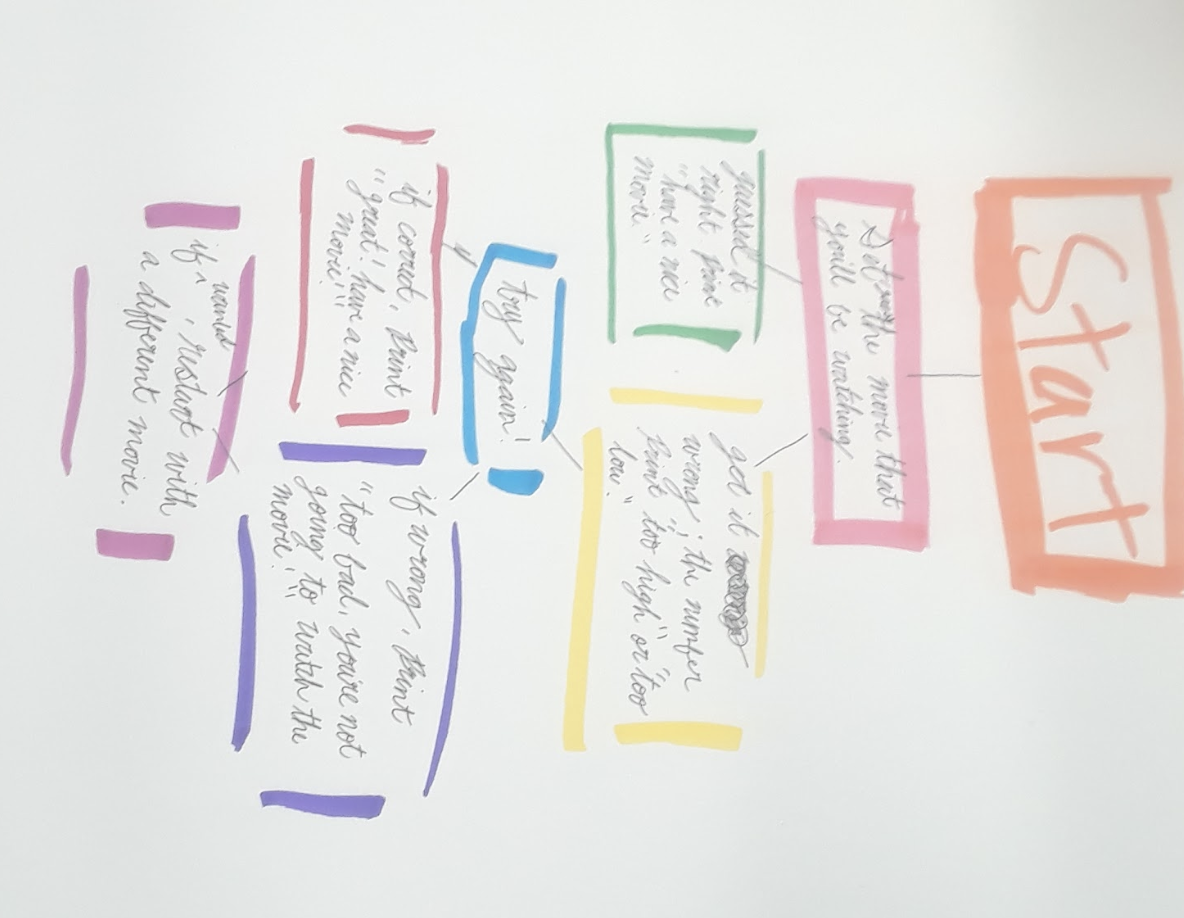 Start
Set the movie that
you'll be watching.
guessed it
right print
"have a nice
movie."
got it
wrong, the number
print "too high" or "too
low."
try again!
if correct, print
"great! have a nice
movie!"
if wrong, print
"too bad, you're not
going to watch the
movie!"
if wanted
, restart with
a different movie.